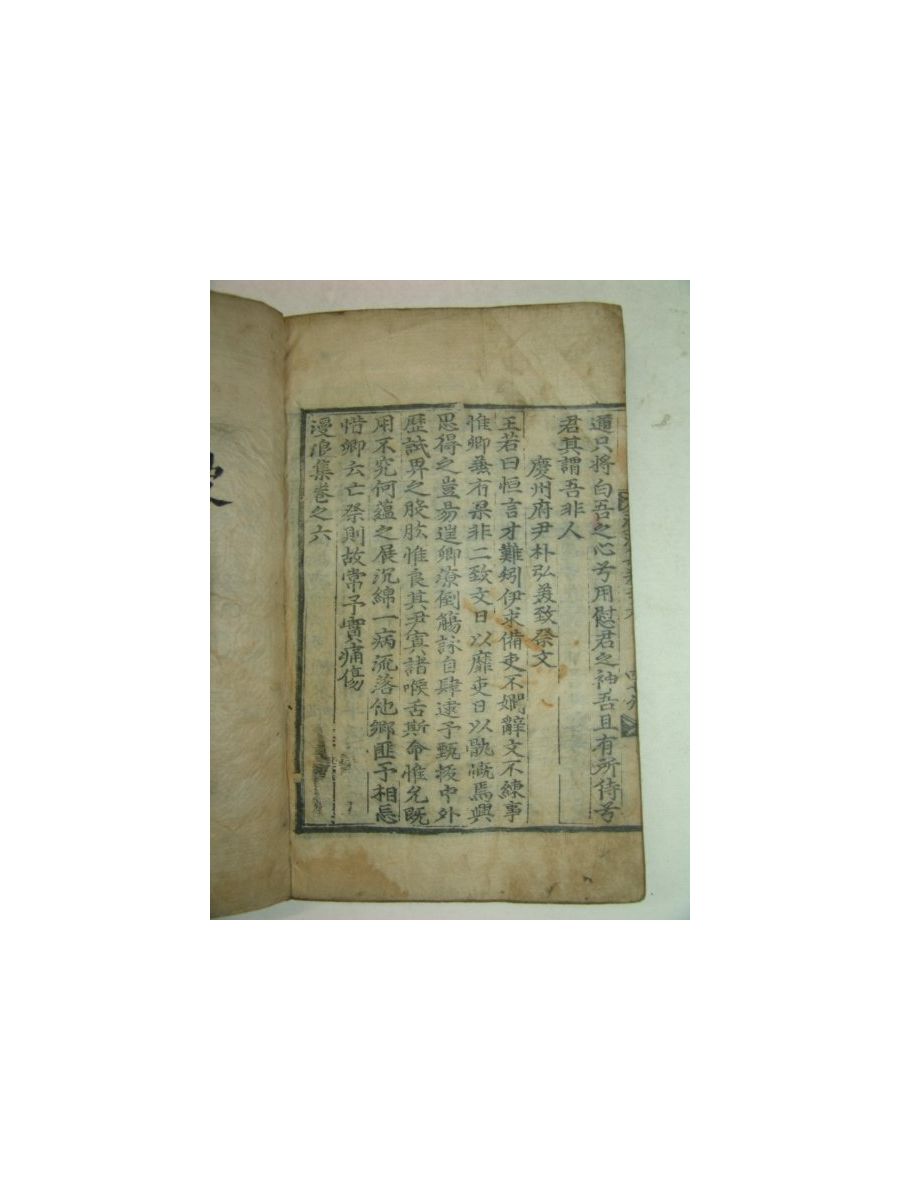 適只將白吾之心兮用慰君之神吾且有所待兮
君其謂吾非人
慶州府尹朴弘羙致祭文
王若曰恒言才難矧伊求備吏不嫺辭文不練事
惟卿兼有果非二致文日以靡吏日以骩慨焉興
思得之豈易逞卿潦倒觴詠自肆逮予甄拔中外
歷試畀之股肱惟良其尹寘諸喉舌斯命惟允旣
用不究何蘊之展沉綿一病流落他鄕匪予相忘
惜卿云亡祭則故常予實痛傷
漫浪集卷之六